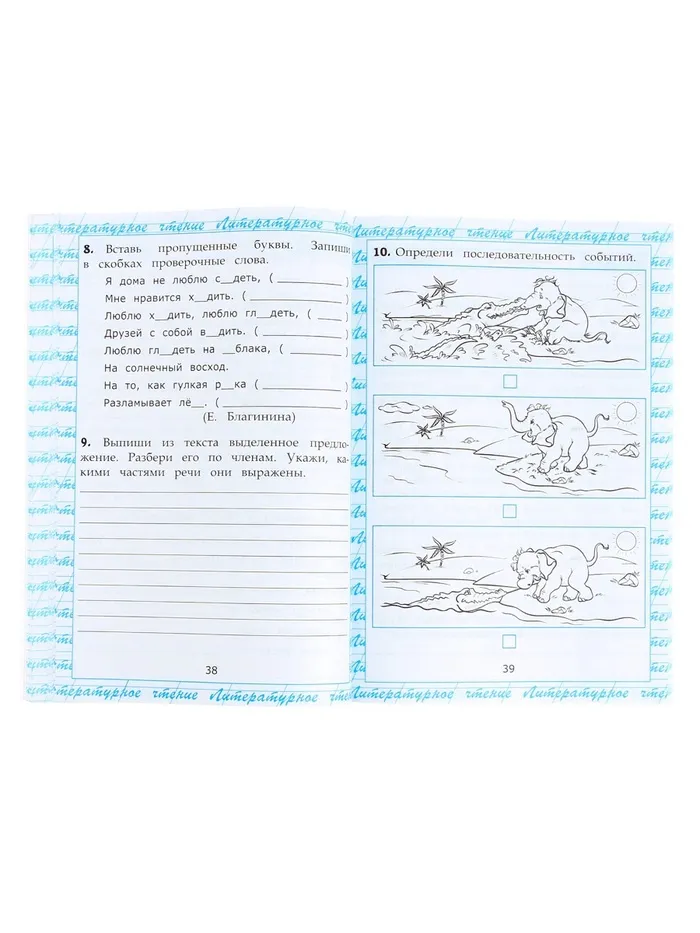 Литературное чтение Литературное чтение
8. Вставь пропущенные буквы. Запиши
в скобках проверочные слова.
Я дома не люблю с__деть, ( __________ )
Мне нравится х__дить. ( _____________ )
Люблю х__дить, люблю гл__деть, ( ___ )
Друзей с собой в__дить. ( ____________ )
Люблю гл__деть на __блака, ( ________ )
На солнечный восход.
На то, как гулкая р__ка ( ____________ )
Разламывает лё__. ( _________________ )
(Е. Благинина)
9. Выпиши из текста выделенное предло-
жение. Разбери его по членам. Укажи, ка-
кими частями речи они выражены.
38
Литературное чтение Литературное чтение
Литературное чтение
10. Определи последовательность событий.
39
Литературное чтение Литературное чтение